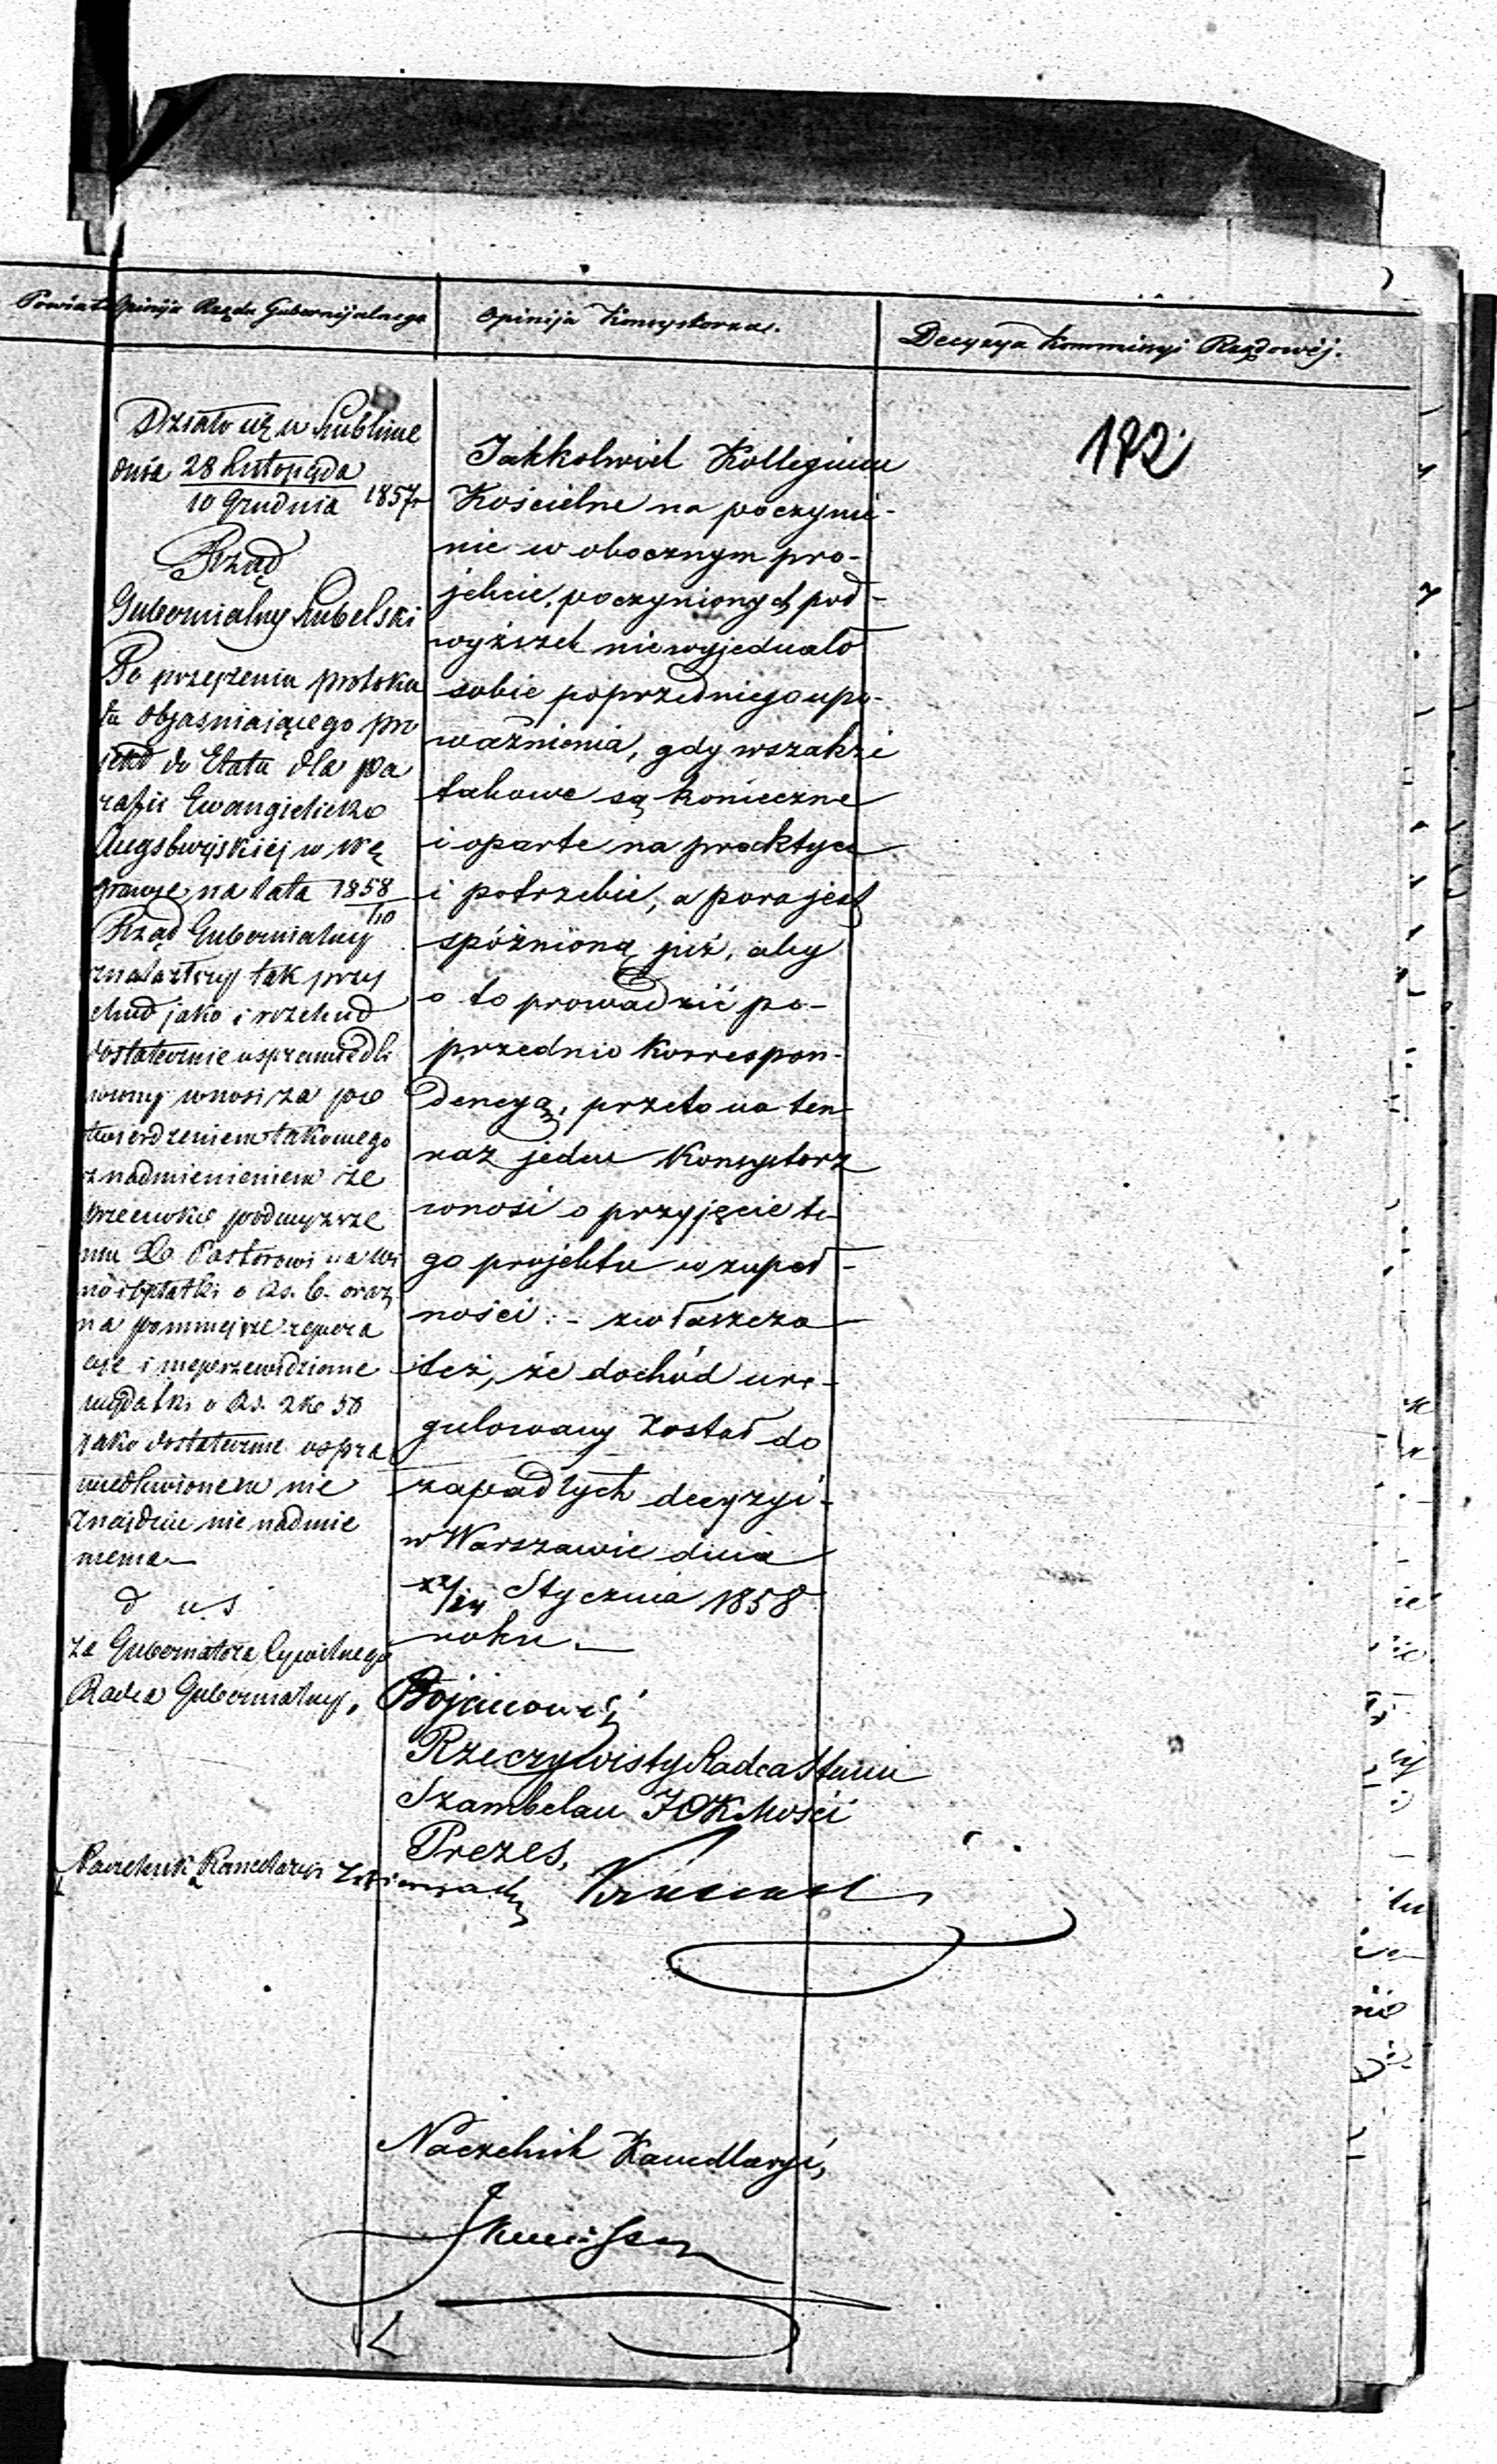 Powiat Opinija Rządu Gubernijalnego
Opinija Konsystorza.
Decyzya Kommissyi Rządowéj.
192
Działo się w Lublinie
dnia 28 Listopada
10 Grudnia 1857 r
Rząd
Gubernialny Lubelski
Po przejrzeniu protoku
łu objasniaiącego pro
jekt do Etatu dla pa
rafii Ewangielicko
Augsburskiej w Wę
growie na lata 1858
/60
Rząd Gubernialny
znalazłszy tak przy
chod jako i rozchod
dostatecznie usprawiedli
wiony wnosi za po
twierdzeniem takowego
z nadmienieniem że
przeciwko podwyższe
niu Pastorowi na wi
no i opłatki o Rs. 6. oraz
na pomniejsze repera
cje i nieprzewidziane
wydatki o Rs. 2 ko 50
jako dostatecznie uspra
wiedliwionem nie
znajduie nic nadmie
nienia
d u s
za Gubernatora Cywilnego
Radca Gubernialny,
Naczelnik Kancelaryi
Jakkolwiek Kollegium
Kościelne na poczynie-
nie w obocznym pro-
jekcie, poczynionych pod-
wyższek niewyjednało
sobie poprzedniego upo-
ważnienia, gdy wszakże
takowe są konieczne
i oparte na praktyce
i potrzebie, a pora jest
spóźnioną już, aby
o to prowadzić po-
przednio korrespon-
dencyą, przeto na ten
raz jeden Konsystorz
wnosi o przyjęcie te-
go projektu w zupeł-
ności. - zwłaszcza
też, że dochód ure-
gulowany został do
zapadłych decyzyi -
w Warszawie dnia
12/24 Stycznia 1858
roku.
Rzeczywisty Radca Stanu
Szambelan JCKMości
Prezes,
Naczelnik Kancellaryi,